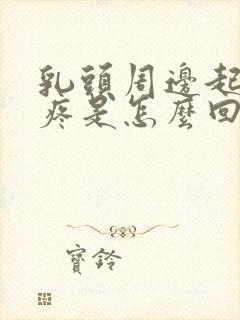 乳頭周邊起
疼是怎麼回
寶鈴